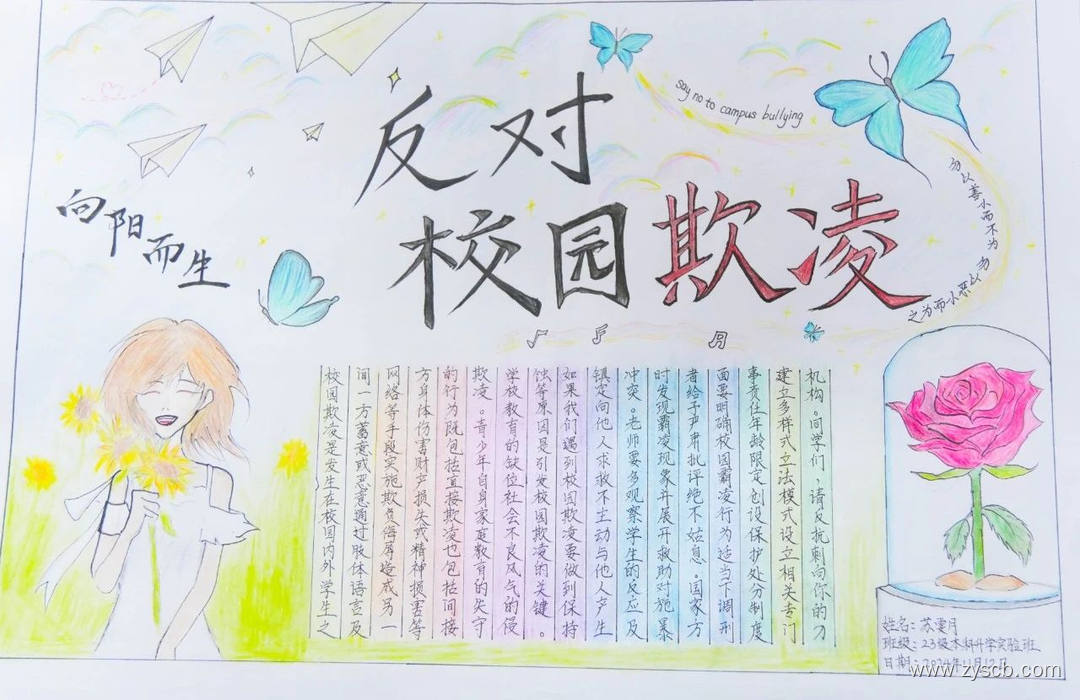 反对
校园欺凌
say no to campus bullying
勿以善小而不为 勿以恶小而为之
向阳而生
校园欺凌是发生在校园内外学生之
间一方蓄意或恶意通过肢体语言及
网络等手段实施欺负侮辱造成另一
方身体伤害财产损失或精神损害等
的行为既包括直接欺凌也包括间接
欺凌。青少年自身家庭教育的失守
学校教育的缺位社会不良风气的侵
蚀等原因是引发校园欺凌的关键。
如果我们遇到校园欺凌要做到保持
镇定向他人求救不主动与他人产生
冲突。老师要多观察学生的反应及
时发现霸凌现象并展开救助对施暴
者给予严肃批评绝不姑息。国家方
面要明确校园霸凌行为适当下调刑
事责任年龄限定创设保护处分制度
建立多样式立法模式设立相关专门
机构。同学们,请反抗刺向你的刀
姓名:苏雯月
班级:23级本科升学实验班
日期:2024年11月12日
www.zyscb.com